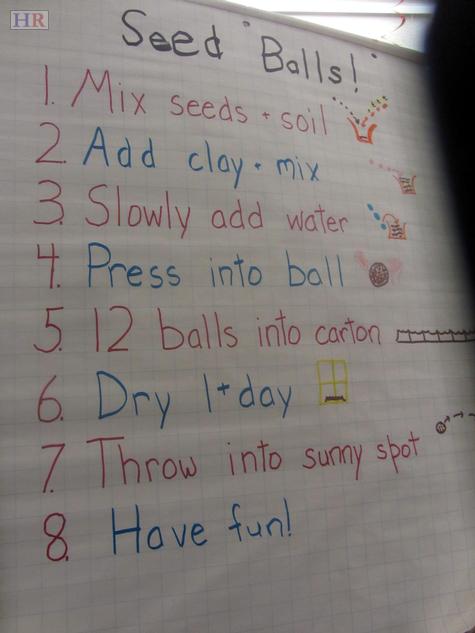 HR
Seed "Balls!"
1. Mix seeds + soil
2. Add clay + mix
3. Slowly add water
4. Press into ball
5. 12 balls into carton
6. Dry 1+ day
7. Throw into sunny spot
8. Have fun!